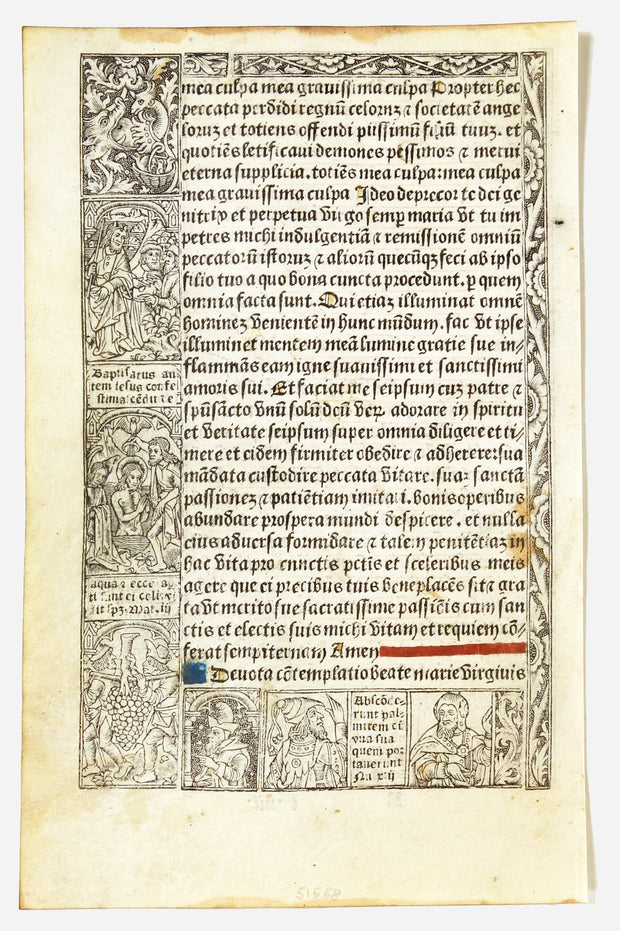 mea culpa mea gravissima culpa Propter hec
peccata perdidi regnū celorūz ⁊ societatē ange
loruz et totiens offendi piissimū filiū tuuz. et
quotiēs letificaui demones pessimos ⁊ merui
eterna supplicia. totiēs mea culpa: mea culpa
mea gravissima culpa Ideo deprecor te dei ge
nitrix et perpetua virgo semp maria vt tu im
petres michi indulgentiā ⁊ remissionē omniū
peccatorū istoruz ⁊ aliorū quecūqz feci ab ipso
filio tuo a quo bona cuncta procedunt. p quem
omnia facta sunt. Qui etiaz illuminat omnē
hominez venientē in hunc mūdum. fac vt ipse
illuminet mentem meā lumine gratie sue in⸗
flammās eam igne suavissimi et sanctissimi
amoris sui. Et faciat me seipsum cuz patre ⁊
spūsācto vnū solū deū verū adorare in spiritu
et veritate seipsum super omnia diligere et ti⸗
mere et eidem firmiter obedire ⁊ adherere: sua
mādata custodire peccata vitare. suaz sanctā
passionez ⁊ patiētiam imitari. bonis operibus
abundare prospera mundi despicere. et nulla
eius aduersa formidare ⁊ talem penitētiaz in
hac vita pro cunctis pctīs et sceleribus meis
agere que ei precibus tuis beneplacēs sit ⁊ gra
ta vt merito sue sacratissime passiōis cum san
ctis et electis suis michi vitam et requiem cō⸗
ferat sempiternam Amen
Deuota cōtemplatio beate marie virginis
Baptisatus au
tem iesus confe
stim ascēdit de
aqua ⁊ ecce ap
ti sunt ei celi ⁊ vi
dit spz. Mat. iij
Abscōde⸗
runt pal⸗
mitem cū
vua sua
quem por
tauerunt
Nu xiij
51558